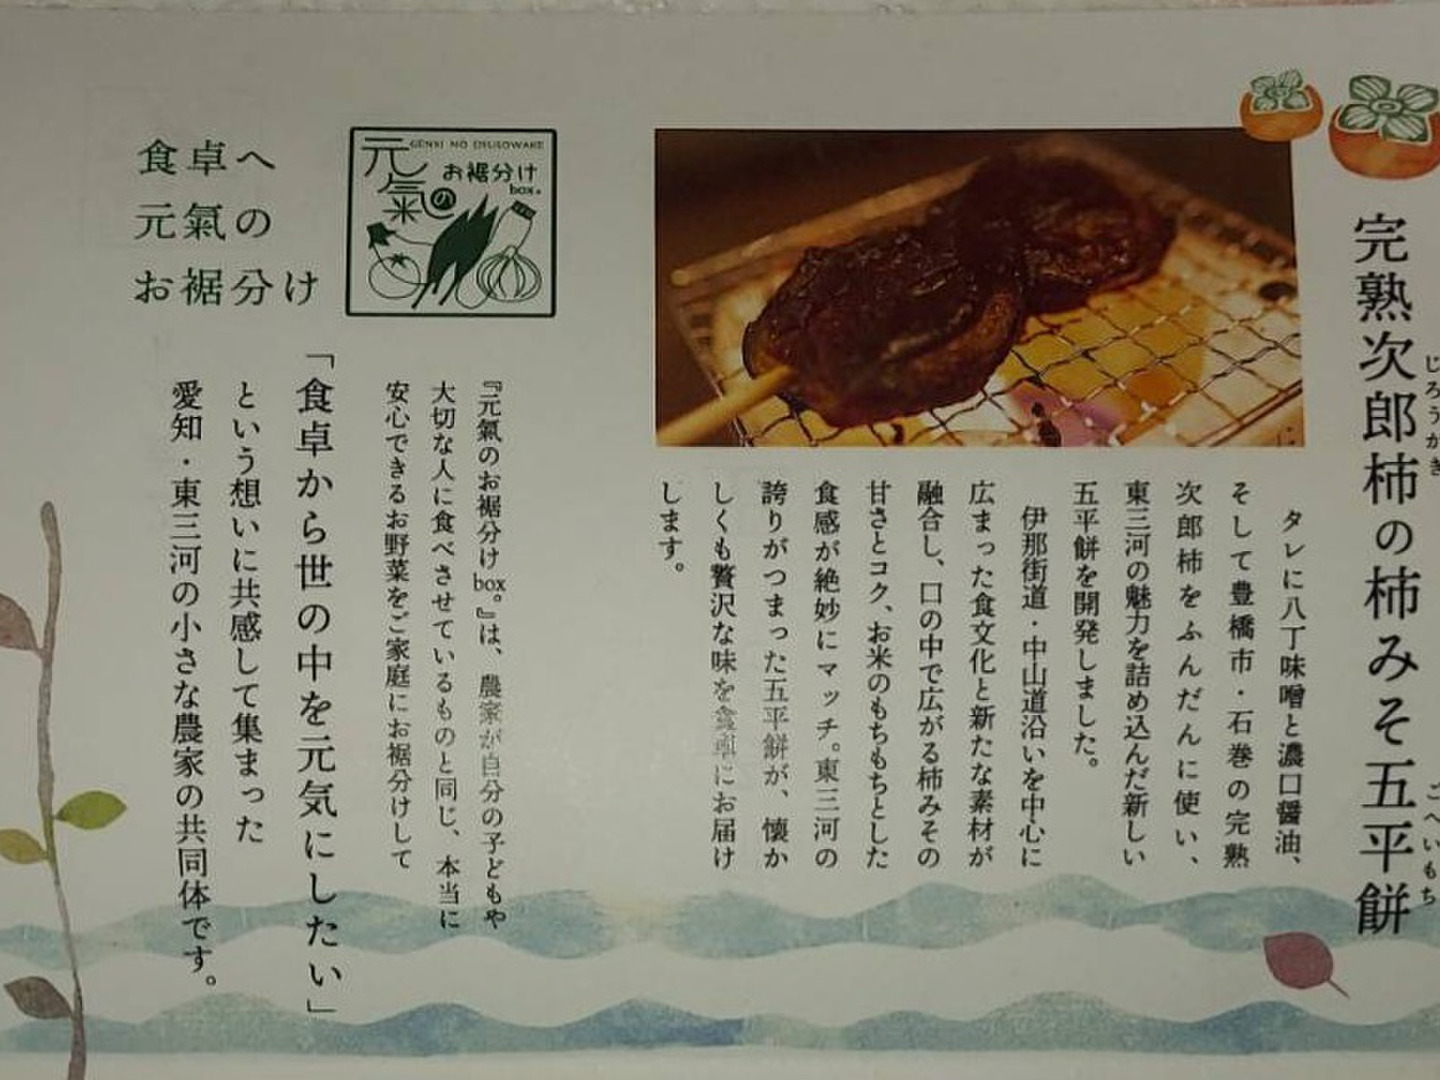 完熟次郎柿の柿みそ五平餅
じろうがき
ごへいもち
タレに八丁味噌と濃口醤油、
そして豊橋市・石巻の完熟
次郎柿をふんだんに使い、
東三河の魅力を詰め込んだ新しい
五平餅を開発しました。
伊那街道・中山道沿いを中心に
広まった食文化と新たな素材が
融合し、口の中で広がる柿みその
甘さとコク、お米のもちもちとした
食感が絶妙にマッチ。東三河の
誇りがつまった五平餅が、懐か
しくも贅沢な味を食卓にお届け
します。
元氣の
GENKI NO OSUSOWAKE
お裾分け
box。
『元氣のお裾分けbox。』は、農家が自分の子どもや
大切な人に食べさせているものと同じ、本当に
安心できるお野菜をご家庭にお裾分けして
食卓へ
元氣の
お裾分け
「食卓から世の中を元気にしたい」
という想いに共感して集まった
愛知・東三河の小さな農家の共同体です。